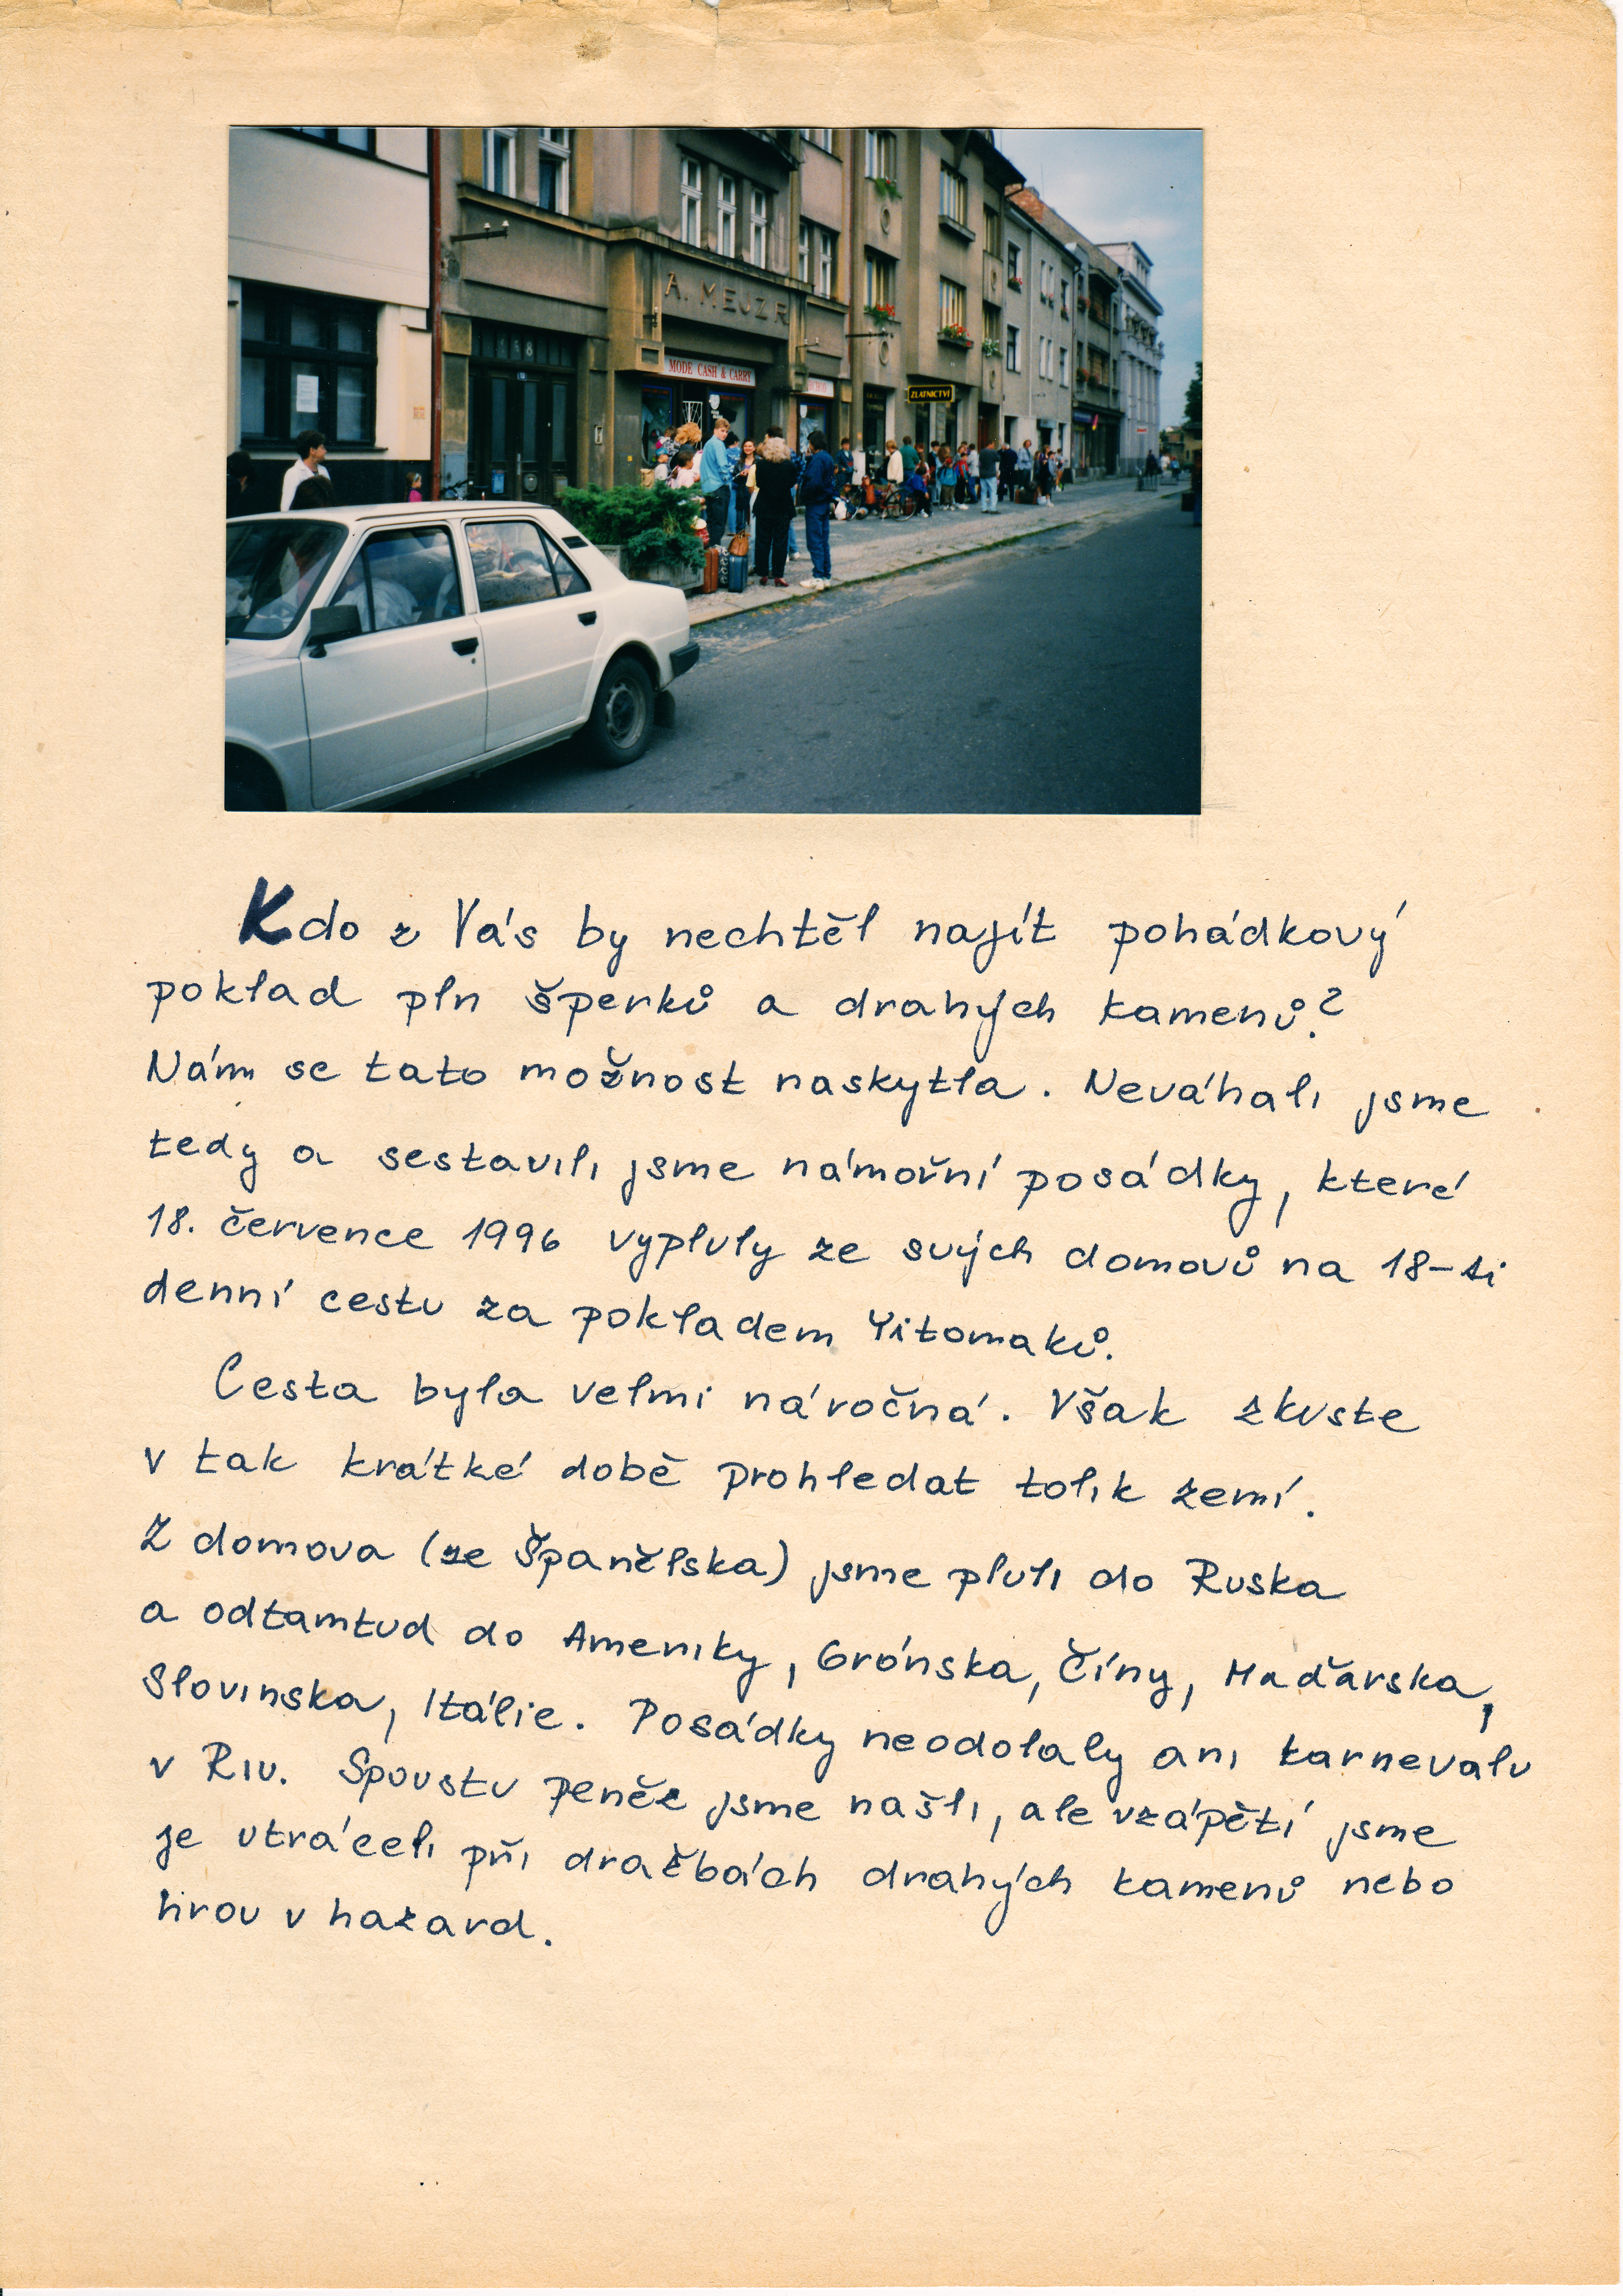 A. MEJZR
158
MODE CASH & CARRY
ZLATNICTVÍ
Kdo z Vás by nechtěl najít pohádkový
poklad pln šperků a drahých kamenů?
Nám se tato možnost naskytla. Neváhali jsme
tedy a sestavili jsme námořní posádky, které
18. července 1996 vypluly ze svých domovů na 18-ti
denní cestu za pokladem Yitomaků.
Cesta byla velmi náročná. Však zkuste
v tak krátké době prohledat tolik zemí.
Z domova (ze Španělska) jsme pluli do Ruska
a odtamtud do Ameriky, Grónska, Číny, Maďarska,
Slovinska, Itálie. Posádky neodolaly ani karnevalu
v Riu. Spoustu peněz jsme našli, ale vzápětí jsme
je utráceli při dražbách drahých kamenů nebo
hrou v hazard.